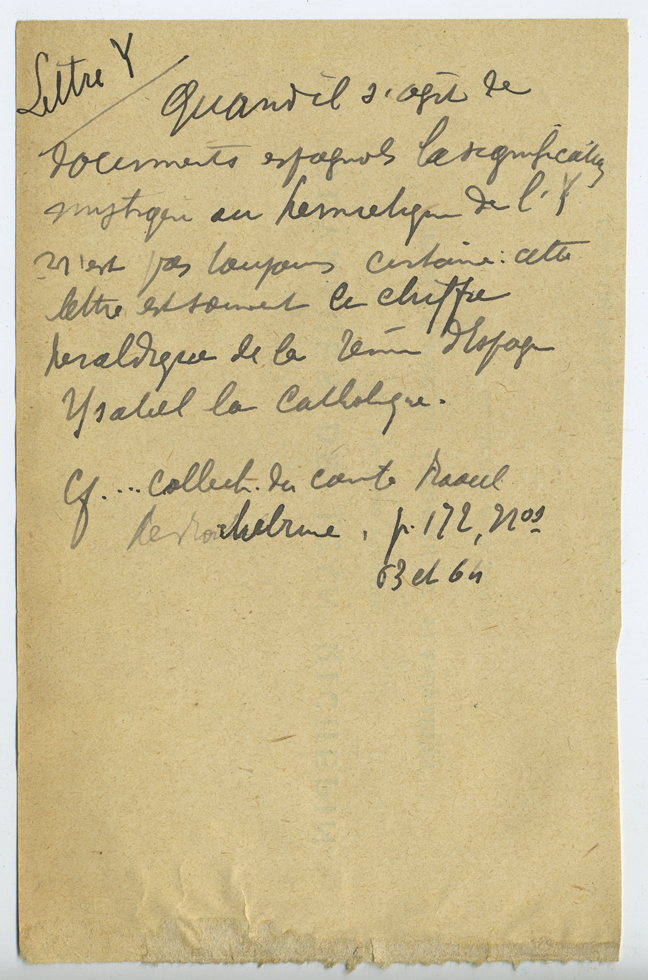 Lettre Y
Quand il s'agit de
documents espagnols la signification
mystique ou hermetique de l'Y
n'est pas toujours certaine: cette
lettre est souvent le chiffre
heraldique de la reine d'Espagne
Ysabel la Catholique.
Cf.... collect. du comte Raoul
de Rochebrune, p. 172, Nos
63 et 64